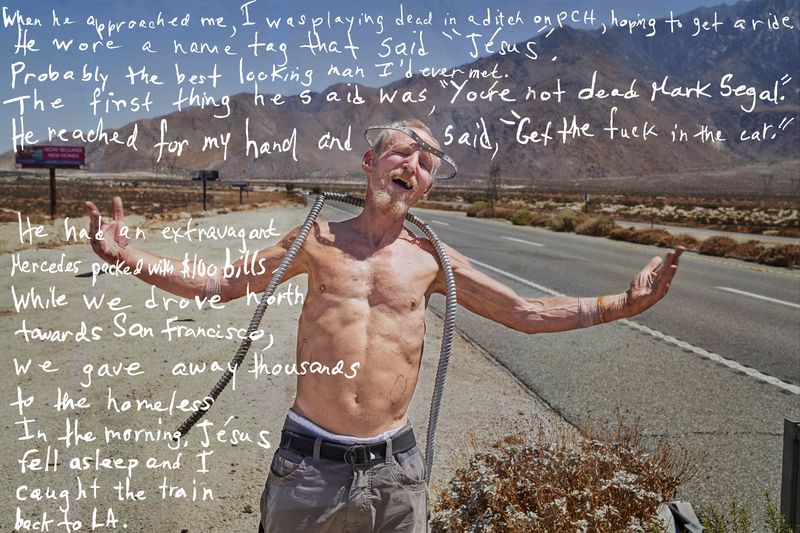 When he approached me, I was playing dead in a ditch on PCH, hoping to get a ride.
He wore a name tag that said "Jésus".
Probably the best looking man I'd ever met.
The first thing he said was, "You're not dead Mark Segal."
He reached for my hand and said, "Get the fuck in the car."
NOW SELLING
NEW HOMES
He had an extravagant
Mercedes packed with $100 bills.
While we drove north
towards San Francisco,
we gave away thousands
to the homeless
In the morning, Jésus
fell asleep and I
caught the train
back to LA.